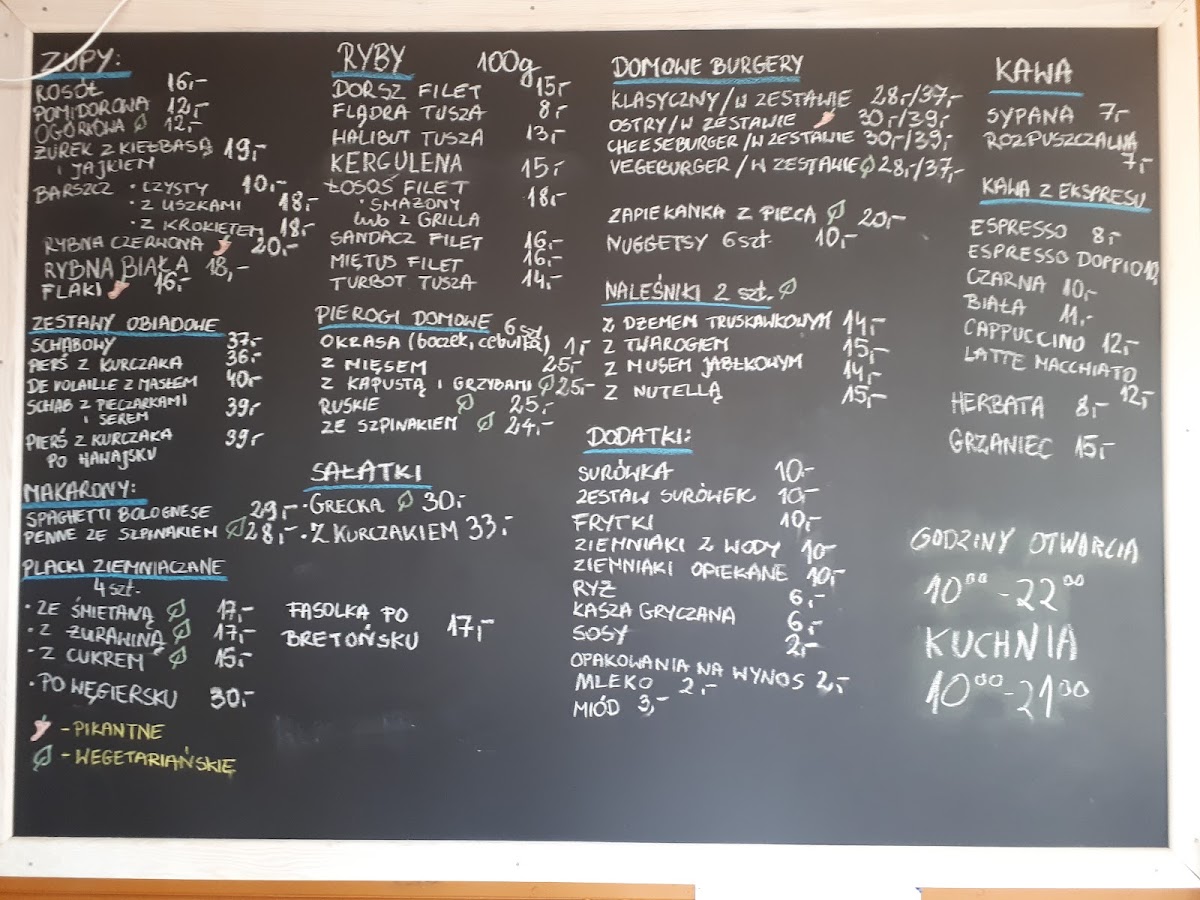 ZUPY:
ROSÓŁ 16,-
POMIDOROWA 12,-
OGÓRKOWA 12,-
ŻUREK Z KIEŁBASĄ 19,-
I JAJKIEM
BARSZCZ • CZYSTY 10,-
• Z USZKAMI 18,-
• Z KROKIETEM 18,-
RYBNA CZERWONA 20,-
RYBNA BIAŁA 18,-
FLAKI 16,-
ZESTAWY OBIADOWE
SCHABOWY 37,-
PIERŚ Z KURCZAKA 36,-
DE VOLAILLE Z MASŁEM 40,-
SCHAB Z PIECZARKAMI 39,-
I SEREM
PIERŚ Z KURCZAKA 39,-
PO HAWAJSKU
MAKARONY:
SPAGHETTI BOLOGNESE 29,-
PENNE ZE SZPINAKIEM 28,-
PLACKI ZIEMNIACZANE
4 szt.
• ZE ŚMIETANĄ 17,-
• Z ŻURAWINĄ 17,-
• Z CUKREM 15,-
• PO WĘGIERSKU 30,-
- PIKANTNE
- WEGETARIAŃSKIE
RYBY 100g
DORSZ FILET 15,-
FLĄDRA TUSZA 8,-
HALIBUT TUSZA 13,-
KERGULENA 15,-
ŁOSOŚ FILET 18,-
• SMAŻONY
lub z GRILLA
SANDACZ FILET 16,-
MIĘTUS FILET 16,-
TURBOT TUSZA 14,-
PIEROGI DOMOWE 6 szt.
OKRASA (boczek, cebulka) 1,-
Z MIĘSEM 25,-
Z KAPUSTĄ I GRZYBAMI 25,-
RUSKIE 25,-
ZE SZPINAKIEM 24,-
SAŁATKI
• GRECKA 30,-
• Z KURCZAKIEM 33,-
FASOLKA PO
BRETOŃSKU 17,-
DOMOWE BURGERY
KLASYCZNY/W ZESTAWIE 28,-/37,-
OSTRY/W ZESTAWIE 30,-/39,-
CHEESEBURGER/W ZESTAWIE 30,-/39,-
VEGEBURGER/W ZESTAWIE 28,-/37,-
ZAPIEKANKA Z PIECA 20,-
NUGGETSY 6 szt. 10,-
NALEŚNIKI 2 szt.
Z DŻEMEM TRUSKAWKOWYM 14,-
Z TWAROGIEM 15,-
Z MUSEM JABŁKOWYM 14,-
Z NUTELLĄ 15,-
DODATKI:
SURÓWKA 10,-
ZESTAW SURÓWEK 10,-
FRYTKI 10,-
ZIEMNIAKI Z WODY 10,-
ZIEMNIAKI OPIEKANE 10,-
RYŻ 6,-
KASZA GRYCZANA 6,-
SOSY 2,-
OPAKOWANIA NA WYNOS 2,-
MLEKO 2,-
MIÓD 3,-
KAWA
SYPANA 7,-
ROZPUSZCZALNA
7,-
KAWA Z EKSPRESU
ESPRESSO 8,-
ESPRESSO DOPPIO 10,
CZARNA 10,-
BIAŁA 11,-
CAPPUCCINO 12,-
LATTE MACCHIATO
12,-
HERBATA 8,-
GRZANIEC 15,-
GODZINY OTWARCIA
10⁰⁰ - 22⁰⁰
KUCHNIA
10⁰⁰ - 21⁰⁰